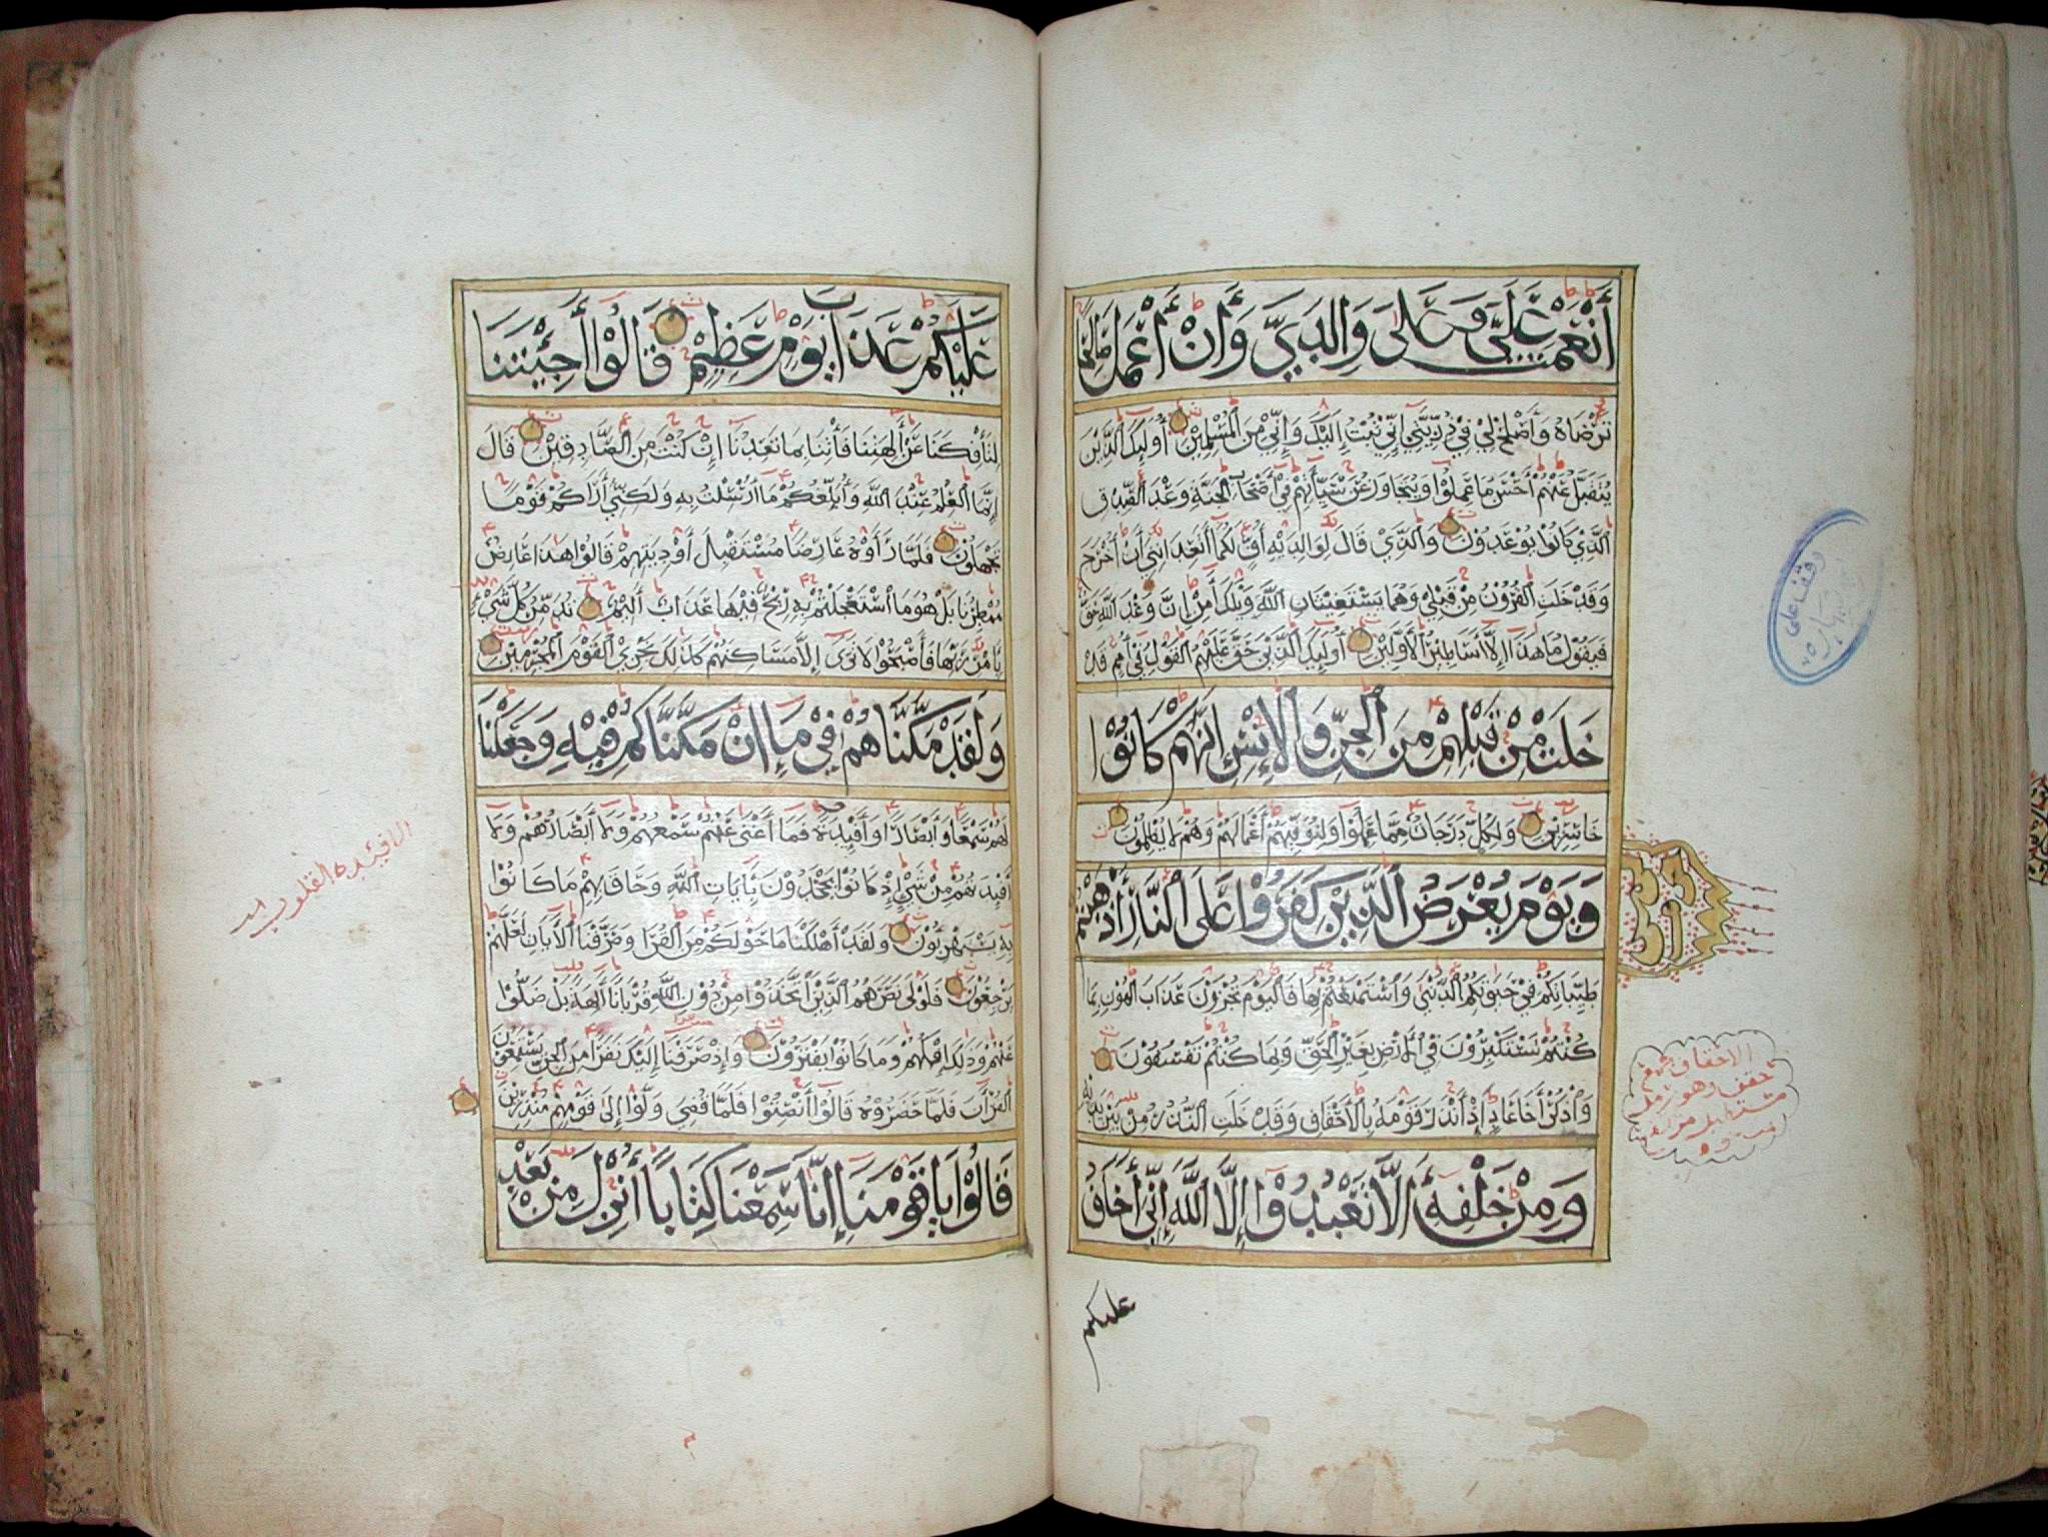 أَنْعَمْتَ عَلَيَّ وَعَلَىٰ وَالِدَيَّ وَأَنْ أَعْمَلَ صَالِحًا
تَرْضَاهُ وَأَصْلِحْ لِيْ فِيْ ذُرِّيَّتِيْ إِنِّيْ تُبْتُ إِلَيْكَ وَإِنِّيْ مِنَ الْمُسْلِمِيْنَ أُولَٰئِكَ الَّذِيْنَ
يُتَقَبَّلُ عَنْهُمْ أَحْسَنُ مَا عَمِلُوْا وَيُتَجَاوَزُ عَنْ سَيِّآتِهِمْ فِيْ أَصْحَابِ الْجَنَّةِ وَعْدَ الصِّدْقِ
الَّذِيْ كَانُوْا يُوْعَدُوْنَ وَالَّذِيْ قَالَ لِوَالِدَيْهِ أُفٍّ لَكُمَا أَتَعِدَانِنِيْ أَنْ أُخْرَجَ
وَقَدْ خَلَتِ الْقُرُوْنُ مِنْ قَبْلِيْ وَهُمَا يَسْتَغِيْثَانِ اللَّهَ وَيْلَكَ آمِنْ إِنَّ وَعْدَ اللَّهِ حَقٌّ
فَيَقُوْلُ مَا هَذَا إِلَّا أَسَاطِيْرُ الْأَوَّلِيْنَ أُولَٰئِكَ الَّذِيْنَ حَقَّ عَلَيْهِمُ الْقَوْلُ فِيْ أُمَمٍ قَدْ
خَلَتْ مِنْ قَبْلِهِمْ مِنَ الْجِنِّ وَالْإِنْسِ إِنَّهُمْ كَانُوْا
خَاسِرِيْنَ وَلِكُلٍّ دَرَجَاتٌ مِمَّا عَمِلُوْا وَلِيُوَفِّيَهُمْ أَعْمَالَهُمْ وَهُمْ لَا يُظْلَمُوْنَ
وَيَوْمَ يُعْرَضُ الَّذِيْنَ كَفَرُوْا عَلَى النَّارِ أَذْهَبْتُمْ
طَيِّبَاتِكُمْ فِيْ حَيَوٰتِكُمُ الدُّنْيَا وَاسْتَمْتَعْتُمْ بِهَا فَالْيَوْمَ تُجْزَوْنَ عَذَابَ الْهُوْنِ بِمَا
كُنْتُمْ تَسْتَكْبِرُوْنَ فِي الْأَرْضِ بِغَيْرِ الْحَقِّ وَبِمَا كُنْتُمْ تَفْسُقُوْنَ
وَاذْكُرْ أَخَا عَادٍ إِذْ أَنْذَرَ قَوْمَهُ بِالْأَحْقَافِ وَقَدْ خَلَتِ النُّذُرُ مِنْ بَيْنِ يَدَيْهِ
وَمِنْ خَلْفِهِ أَلَّا تَعْبُدُوْا إِلَّا اللَّهَ إِنِّيْ أَخَافُ
عليكم
حزب
الاحقاف جمع
حقف وهو رمل
مستطيل مرتفع
وقف على
عَلَيْكُمْ عَذَابَ يَوْمٍ عَظِيْمٍ قَالُوْا أَجِئْتَنَا
لِتَأْفِكَنَا عَنْ آلِهَتِنَا فَأْتِنَا بِمَا تَعِدُنَا إِنْ كُنْتَ مِنَ الصَّادِقِيْنَ قَالَ
إِنَّمَا الْعِلْمُ عِنْدَ اللَّهِ وَأُبَلِّغُكُمْ مَا أُرْسِلْتُ بِهِ وَلَكِنِّيْ أَرَاكُمْ قَوْمًا
تَجْهَلُوْنَ فَلَمَّا رَأَوْهُ عَارِضًا مُسْتَقْبِلَ أَوْدِيَتِهِمْ قَالُوْا هَذَا عَارِضٌ
مُمْطِرُنَا بَلْ هُوَ مَا اسْتَعْجَلْتُمْ بِهِ رِيْحٌ فِيْهَا عَذَابٌ أَلِيْمٌ تُدَمِّرُ كُلَّ شَيْءٍ
بِأَمْرِ رَبِّهَا فَأَصْبَحُوْا لَا تَرَىٰ إِلَّا مَسَاكِنَهُمْ كَذَلِكَ نَجْزِي الْقَوْمَ الْمُجْرِمِيْنَ
وَلَقَدْ مَكَّنَّاهُمْ فِيْ مَا إِنْ مَكَّنَّاكُمْ فِيْهِ وَجَعَلْنَا
لَهُمْ سَمْعًا وَأَبْصَارًا وَأَفْئِدَةً فَمَا أَغْنَىٰ عَنْهُمْ سَمْعُهُمْ وَلَا أَبْصَارُهُمْ وَلَا
أَفْئِدَتُهُمْ مِنْ شَيْءٍ إِذْ كَانُوْا يَجْحَدُوْنَ بِآيَاتِ اللَّهِ وَحَاقَ بِهِمْ مَا كَانُوْا
بِهِ يَسْتَهْزِؤُنَ وَلَقَدْ أَهْلَكْنَا مَا حَوْلَكُمْ مِنَ الْقُرَىٰ وَصَرَّفْنَا الْآيَاتِ لَعَلَّهُمْ
يَرْجِعُوْنَ فَلَوْلَا نَصَرَهُمُ الَّذِيْنَ اتَّخَذُوْا مِنْ دُوْنِ اللَّهِ قُرْبَانًا آلِهَةً بَلْ ضَلُّوْا
عَنْهُمْ وَذَلِكَ إِفْكُهُمْ وَمَا كَانُوْا يَفْتَرُوْنَ وَإِذْ صَرَفْنَا إِلَيْكَ نَفَرًا مِنَ الْجِنِّ يَسْتَمِعُوْنَ
الْقُرْآنَ فَلَمَّا حَضَرُوْهُ قَالُوْا أَنْصِتُوْا فَلَمَّا قُضِيَ وَلَّوْا إِلَىٰ قَوْمِهِمْ مُنْذِرِيْنَ
قَالُوْا يَا قَوْمَنَا إِنَّا سَمِعْنَا كِتَابًا أُنْزِلَ مِنْ بَعْدِ
الافئيدة القلوب